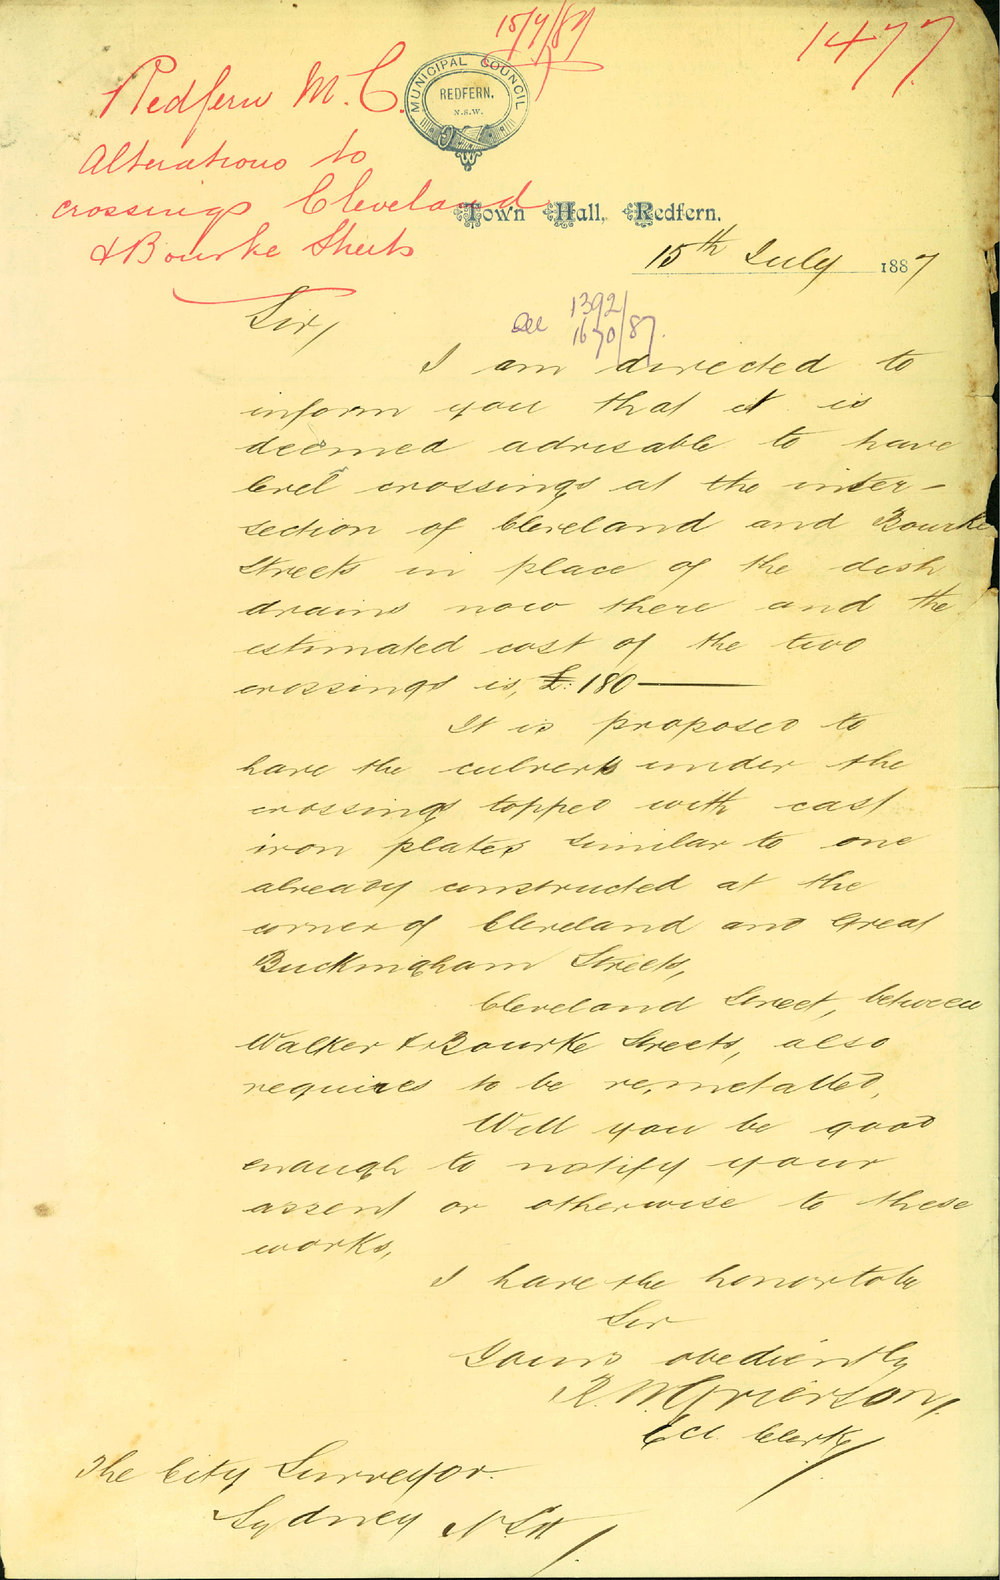 15/7/87
1477
Redfern M.C.
Alterations to
crossings Cleveland
& Bourke Streets
MUNICIPAL COUNCIL
REDFERN.
N.S.W.
Town Hall, Redfern.
15th July 1887
Sir,
see 1392/
1670/87.
I am directed to
inform you that it is
deemed advisable to have
level crossings at the inter-
section of Cleveland and Bourke
Streets in place of the dish
drains now there and the
estimated cost of the two
crossings is, £: 180
It is proposed to
have the culverts under the
crossings topped with cast
iron plates similar to one
already constructed at the
corner of Cleveland and Great
Buckingham Streets,
Cleveland Street, between
Walker & Bourke Streets, also
requires to be re,metalled,
Will you be good
enough to notify your
assent or otherwise to these
works,
I have the honor to be
Sir
Yours obediently
R. W. Grierson,
Ccl. Clerk
The City Surveyor.
Sydney N.S.W